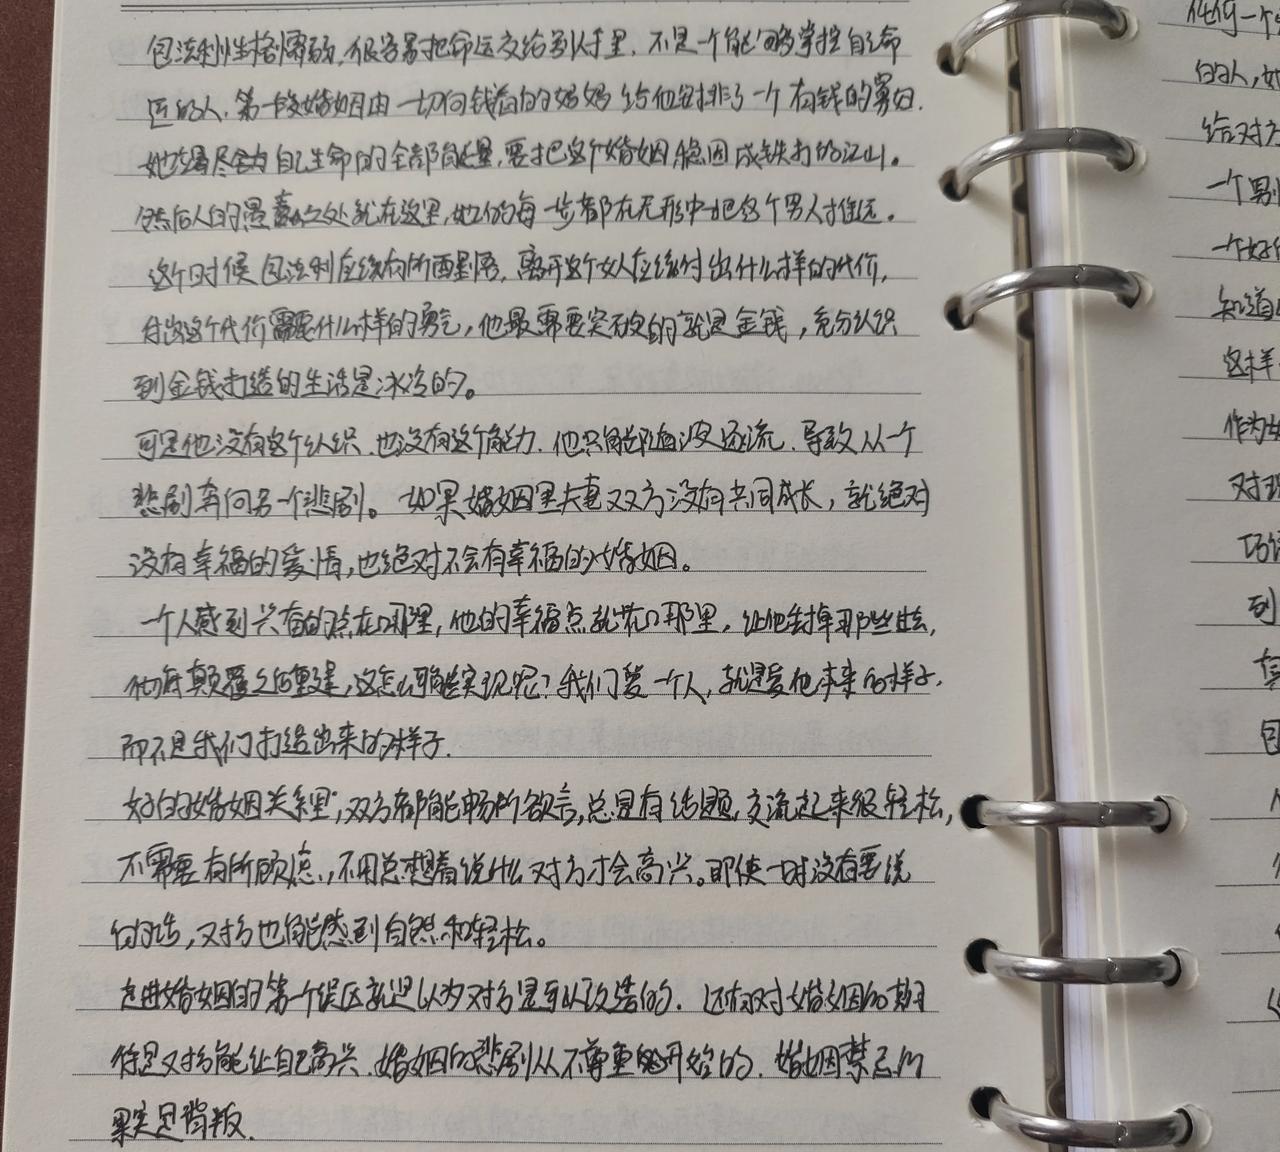 包法利性格懦弱，很容易把命运交给别人手里，不是一个能够掌控自己命
运的人，第一段婚姻由一切向钱看的妈妈给他安排了一个有钱的寡妇．
她浑身尽全力自己生命的全部能量，要把这个婚姻稳固成铁打的江山。
然后人的愚蠢之处就在这里，她们的每一步都在无形中把这个男人推远。
这个时候包法利应该有所醒悟，离开这个女人应该付出什么样的代价，
付出这个代价需要什么样的勇气，他最需要突破的就是金钱，充分认识
到金钱打造的生活是冰冷的。
可是他没有这个认识，也没有这个能力，他只能随波逐流，导致从一个
悲剧奔向另一个悲剧。如果婚姻里夫妻双方没有共同成长，就绝对
没有幸福的爱情，也绝对不会有幸福的婚姻。
一个人感到兴奋的点在哪里，他的幸福点就在哪里，让他
颠覆之后重建，这怎么可能实现呢？我们爱一个人，就是爱他本来的样子，
而不是我们打造出来的样子．
好的婚姻关系里，双方都能畅所欲言，总是有话题，交流起来很轻松，
不需要有所顾忌，不用总想着说什么对方才会高兴。即使一时没有要说
的话，双方也能感到自然和轻松。
走进婚姻的第一个误区就是以为对方是可以改造的．还有对婚姻的期
待是对方能让自己高兴．婚姻的悲剧从不尊重开始的．婚姻禁忌的
果实是背叛．
任何一个
的人，她
给对方
一个男
一个好
知道
这样
作为
对
巧
到